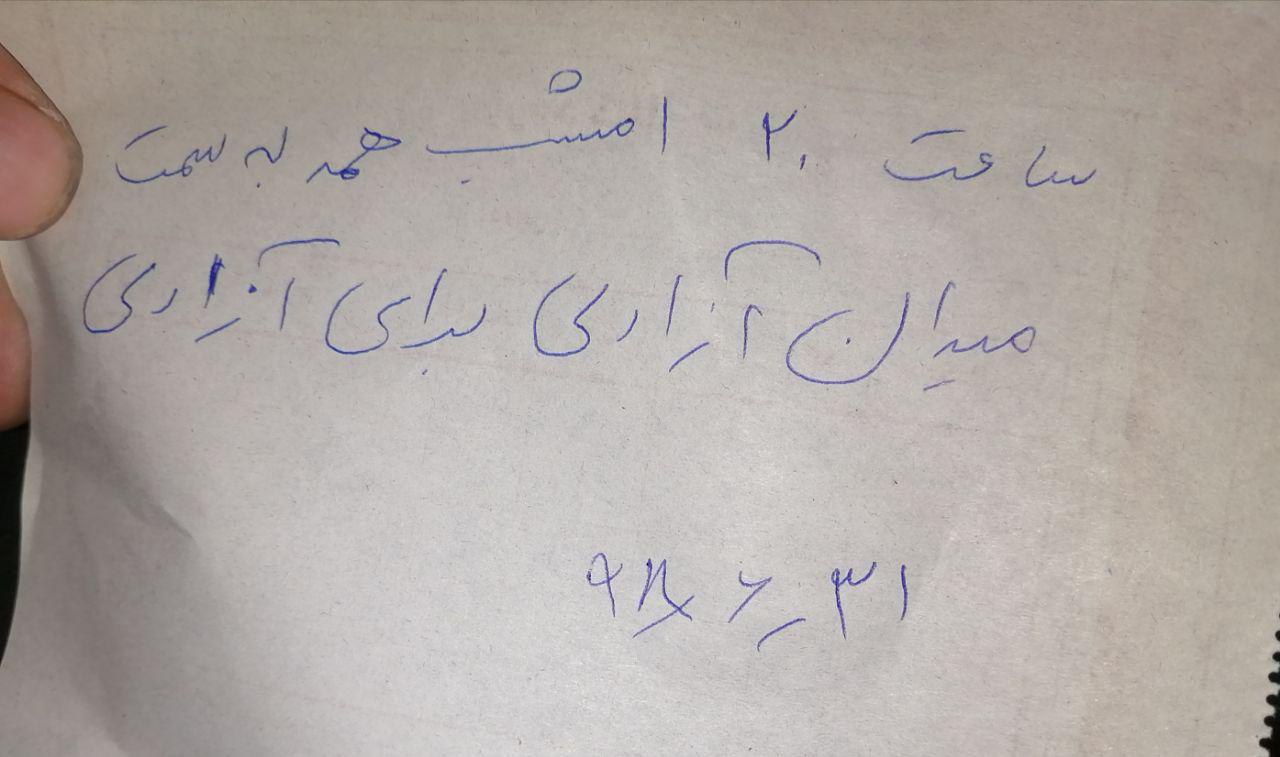 ساعت ۲۰ امشب همه به سمت
میدان آزادی برای آزادی
۳۱_۶_۹۸